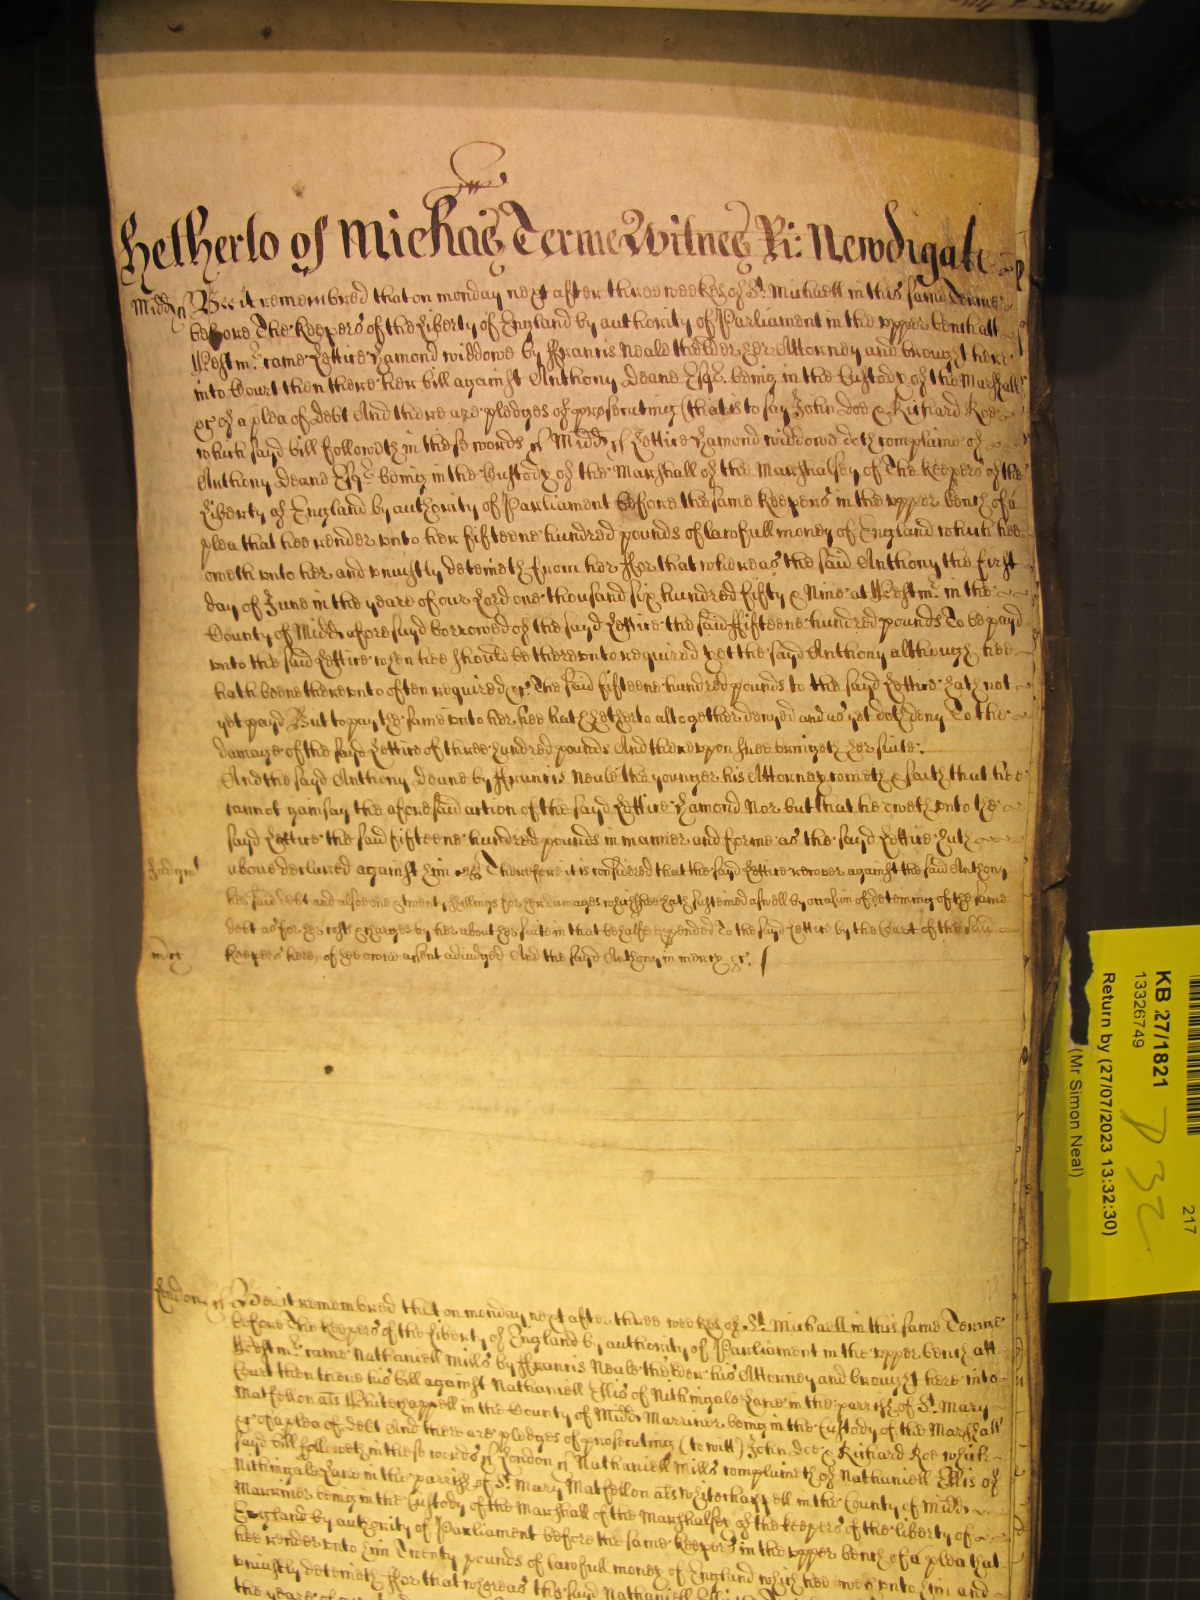 Hetherto of Michaes Terme Witnes Ri: Newdigate
Midds ss Bee it remembred that on monday next after three weekes of St. Michaell in this same Terme
before The Keepers of the Liberty of England by authority of Parliament in the upper bench att
Westmr. came Lettice Hamond widdowe by Francis Neale the elder her Attorney and brought here
into Court then there her bill against Anthony Deane Esqr. being in the Custody of the Marshall
&c of a plea of debt And there are pledges of prosecuting (that is to say John Doe & Richard Roe
which sayd bill followeth in these words ss Midds ss Lettice Hamond widdowe doth complaine of
Anthony Deane Esqr. being in the Custody of the Marshall of the Marshalsey of The Keepers of the
Liberty of England by authority of Parliament before the same Keepers in the upper bench of a
plea that hee render unto her fifteene hundred pounds of lawfull money of England which hee
oweth unto her and uniustly deteineth from her ffor that whereas the said Anthony the first
day of June in the yeare of our Lord one thousand six hundred fifty & Nine at Westmr. in the
County of Midds aforesayd borrowed of the sayd Lettice the said ffifteene hundred pounds To be payd
unto the said Lettice when hee should be thereunto required yet the sayd Anthony although hee
hath beene thereunto often required &c. The said fifteene hundred pounds to the sayd Lettice hath not
yet payd But to pay the same unto her hee hath hetherto altogether denyed and as yet doth deny To the
damage of the sayd Lettice of three hundred pounds And thereupon shee bringeth her suite.
And the sayd Anthony Deane by ffrancis Neale the younger his Attorney cometh & saith that hee
cannot gainsay the aforesaid action of the sayd Lettice Hamond Nor but that he oweth unto the
sayd Lettice the said fifteene hundred pounds in manner and forme as the sayd Lettice hath
Judgmt above declared against him &c Therefore it is considered that the sayd Lettice recover against the said Anthony
her said debt and alsoe one & twenty shillings for her damages which shee hath susteined aswell by occasion of deteining of the same
debt as for her costs & charges by her about her suite in that behalfe expended To the sayd Lettice by the Court of the said
mcy Keepers here, of her owne assent adiudged And the sayd Anthony in mercy &c.
London ss Bee it remembred that on monday next after three weekes of St. Michaell in this same Terme
before The Keepers of the Liberty of England by authority of Parliament in the upper bench att
Westmr. came Nathaniell Mills by ffrancis Neale the elder his Attorney and brought here into
Court then there his bill against Nathaniell Ellis of Nithingale Lane in the parrish of St. Mary
Matfellon als Whitechappell in the County of Midds Marriner being in the Custody of the Marshall
&c of a plea of debt And there are pledges of prosecuting (to witt) John Doe & Richard Roe which
sayd bill followeth in these words ss London ss Nathaniell Mills complaineth of Nathaniell Ellis of
Nithingale Lane in the parrish of St. Mary Matfellon als Whitechappell in the County of Midds
Marriner being in the Custody of the Marshall of the Marshalsey of the keepers of the liberty of
England by authority of Parliament before the same Keepers in the upper bench of a plea that
hee render unto him Twenty pounds of lawfull money of England which hee oweth unto him and
uniustly deteineth ffor that whereas the sayd Nathaniell Ellis
the yeare of
KB 27/1821
13326749
Return by (27/07/2023 13:32:30)
(Mr Simon Neal)
217
P 32